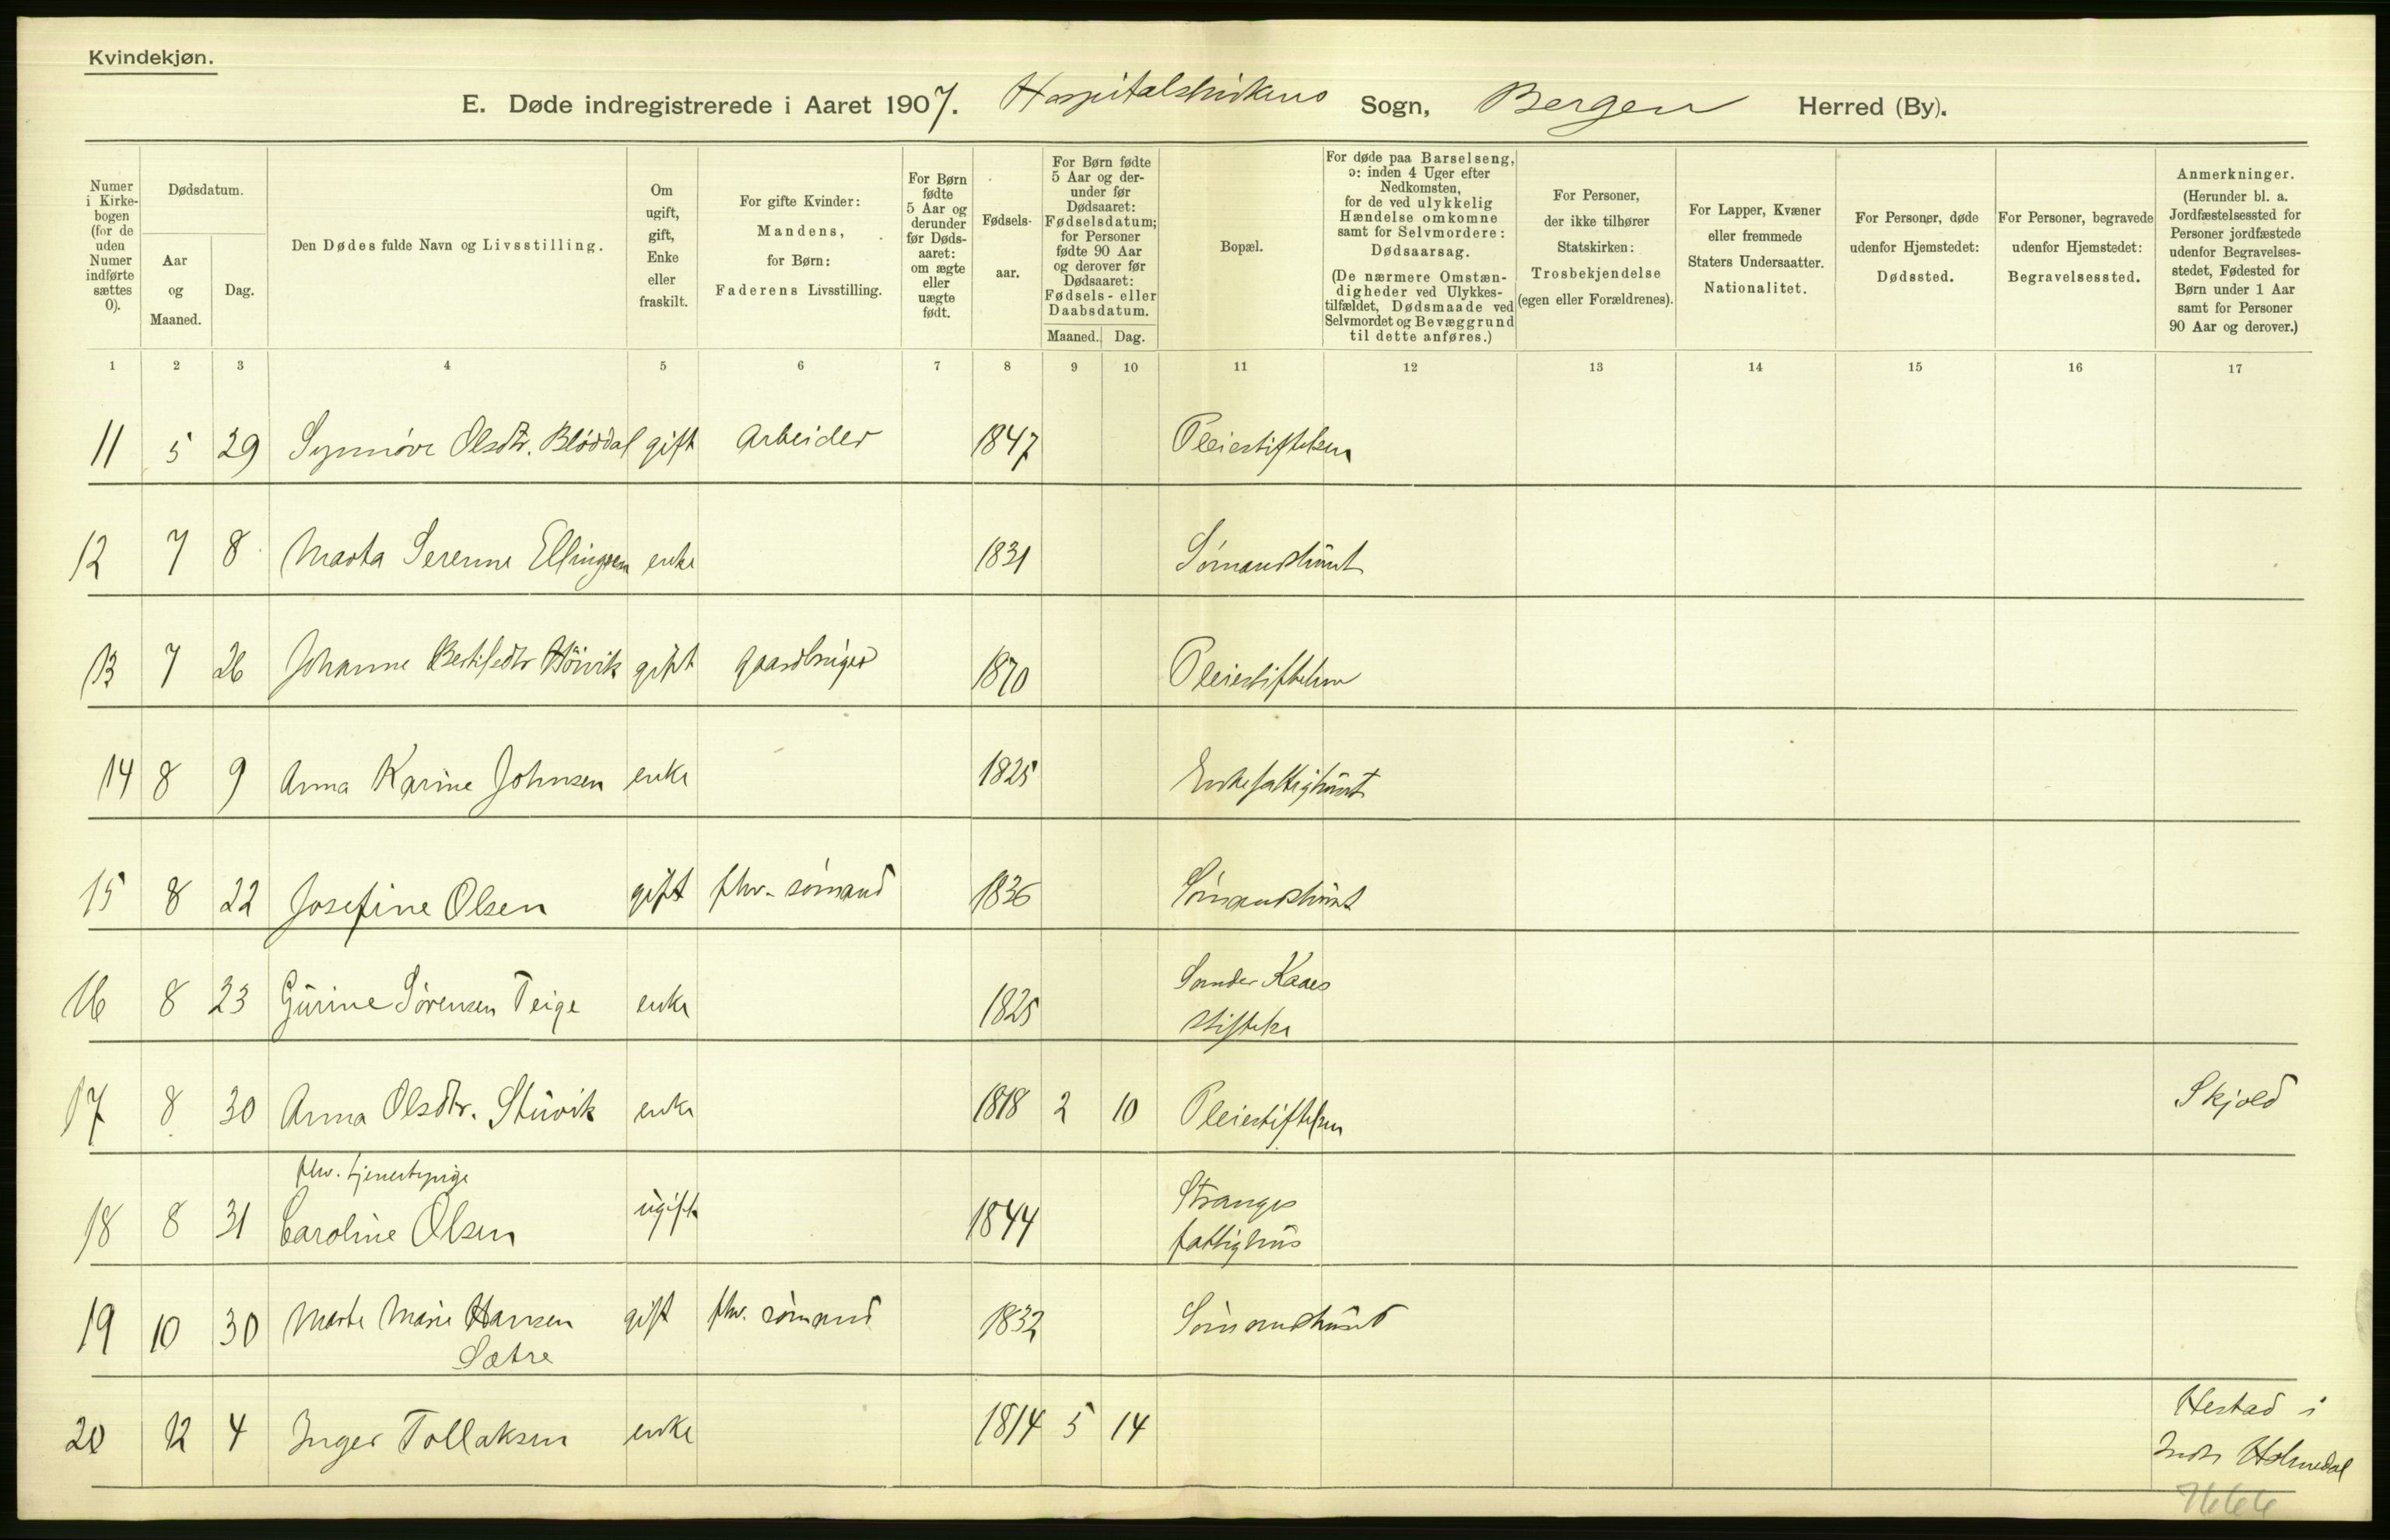 Kvindekjøn.
E. Døde indregistrerede i Aaret 1907. Hospitalskirkens Sogn, Bergen Herred (By).
Numer i Kirkebogen (for de uden Numer indførte sættes 0).
Dødsdatum.
Aar og Maaned.
Dag.
Den Dødes fulde Navn og Livsstilling.
Om ugift, gift, Enke eller fraskilt.
For gifte Kvinder: Mandens, for Børn: Faderens Livsstilling.
For Børn fødte 5 Aar og derunder før Dødsaaret: om ægte eller uægte født.
Fødselsaar.
For Børn fødte 5 Aar og derunder før Dødsaaret: Fødselsdatum; for Personer fødte 90 Aar og derover før Dødsaaret: Fødsels- eller Daabsdatum.
Maaned. Dag.
Bopæl.
For døde paa Barselseng, ɔ: inden 4 Uger efter Nedkomsten, for de ved ulykkelig Hændelse omkomne samt for Selvmordere: Dødsaarsag. (De nærmere Omstændigheder ved Ulykkestilfældet, Dødsmaade ved Selvmordet og Bevæggrund til dette anføres.)
For Personer, der ikke tilhører Statskirken: Trosbekjendelse (egen eller Forældrenes).
For Lapper, Kvæner eller fremmede Staters Undersaatter. Nationalitet.
For Personer, døde udenfor Hjemstedet: Dødssted.
For Personer, begravede udenfor Hjemstedet: Begravelsessted.
Anmerkninger. (Herunder bl. a. Jordfæstelsessted for Personer jordfæstede udenfor Begravelsesstedet, Fødested for Børn under 1 Aar samt for Personer 90 Aar og derover.)
1 2 3 4 5 6 7 8 9 10 11 12 13 14 15 16 17
11 5 29 Synnöve Olsdtr. Blöddal gift Arbeider 1847 Pleiestiftelsen
12 7 8 Marta Serenne Ellingsen enke 1831 Sömandshüset
13 7 26 Johanne Bertilsdtr Höivik gift Gaardbruger 1870 Pleiestiftelsen
14 8 9 Anna Karine Johnsen enke 1825 Enkefattighuset
15 8 22 Josefine Olsen gift fhv. sömand 1836 Sömandshüset
16 8 23 Gürine Sörensen Teige enke 1825 Sander Kaaes
stiftelse
17 8 30 Anna Olsdtr. Stüvik enke 1818 2 10 Pleiestiftelsen Skjold
fhv. tjenestepige
18 8 31 Caroline Olsen ügift 1844 Stranges
fattighüs
19 10 30 Marte Marie Hansen gift fhv. sömand 1832 Sömandshüset
Sætre
20 12 4 Inger Tollaksen enke 1814 5 14 Hestad i
Indr Holmedal